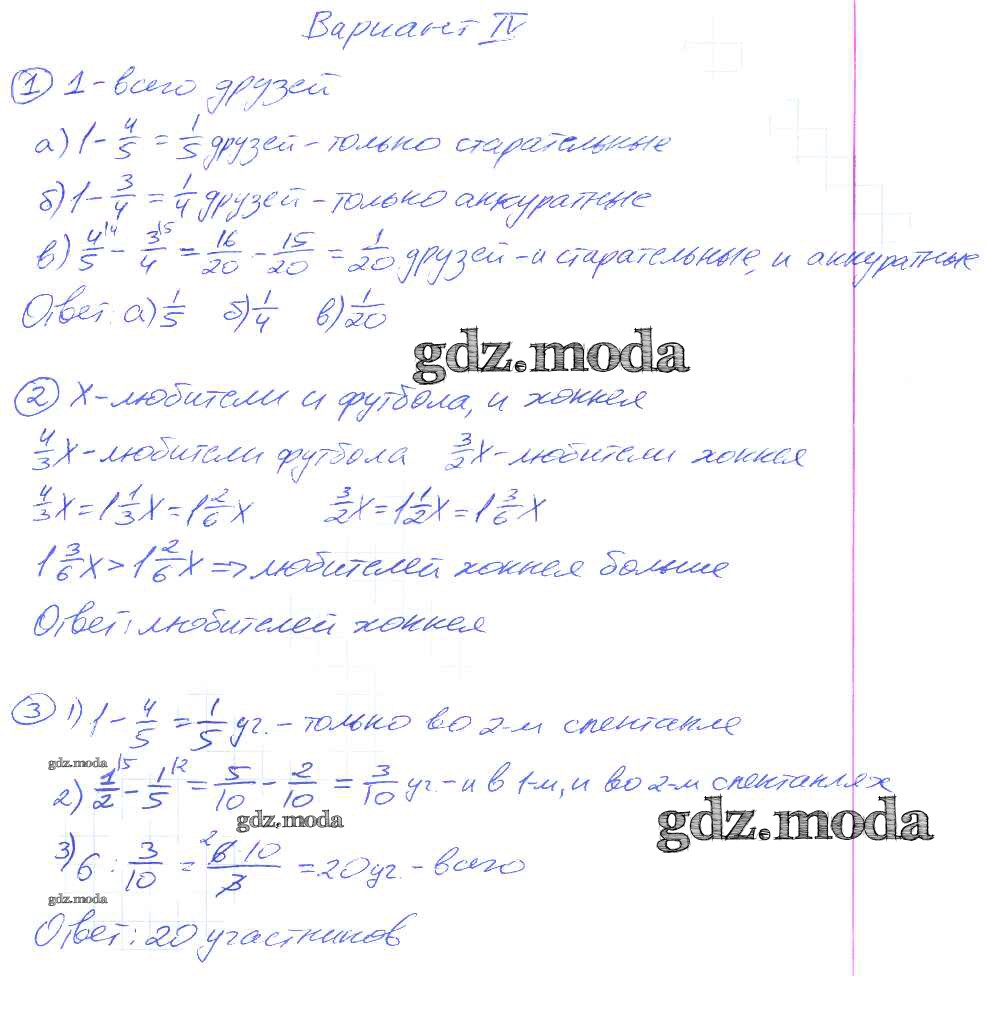 Вариант IV
① 1-всего друзей
а) 1 - 4/5 = 1/5 друзей - только старательные
б) 1 - 3/4 = 1/4 друзей - только аккуратные
в) 4/5^{\4} - 3/4^{\5} = 16/20 - 15/20 = 1/20 друзей - и старательные, и аккуратные
Ответ: а) 1/5 б) 1/4 в) 1/20
gdz.moda
② X-любители и футбола, и хоккея
4/3X - любители футбола 3/2X - любители хоккея
4/3X = 1 1/3X = 1 2/6X 3/2X = 1 1/2X = 1 3/6X
1 3/6X > 1 2/6X => любителей хоккея больше
Ответ: любителей хоккея
③ 1) 1 - 4/5 = 1/5 уч. - только во 2-м спектакле
gdz.moda
2) 1/2^{\5} - 1/5^{\2} = 5/10 - 2/10 = 3/10 уч. - и в 1-м, и во 2-м спектаклях
gdz.moda
gdz.moda
3) 6 : 3/10 = ²6·10/3 = 20 уч. - всего
gdz.moda
Ответ: 20 участников